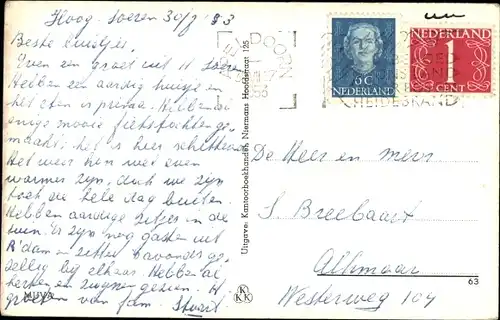 Hoog Soeren 30/7 53
Beste luitjes.
Even een groet uit H. Soeren
Hebben een aardig huisje en
het eten is prima. Hebben al
enige mooie fietstochten ge-
maakt. het is hier schitterend
Het weer kon wel even
warmer zijn, doch we zijn
toch de hele dag buiten.
Hebben aardige zitjes in de
tuin. Er zijn nog gasten uit
R'dam en zitten 's avonds ge-
zellig bij elkaar. Hebben al
herten en zwijnen gezien. H.
groeten van fam.
MUVA
Uitgave: Kantoorboekhandel Niermans Hoofdstraat 125
KKK
DOORN
1953
HEIDEKRAND
6C
NEDERLAND
NEDERLAND
1
CENT
De Heer en mevr.
S. Breebaart
Alkmaar
Westerweg 104
63